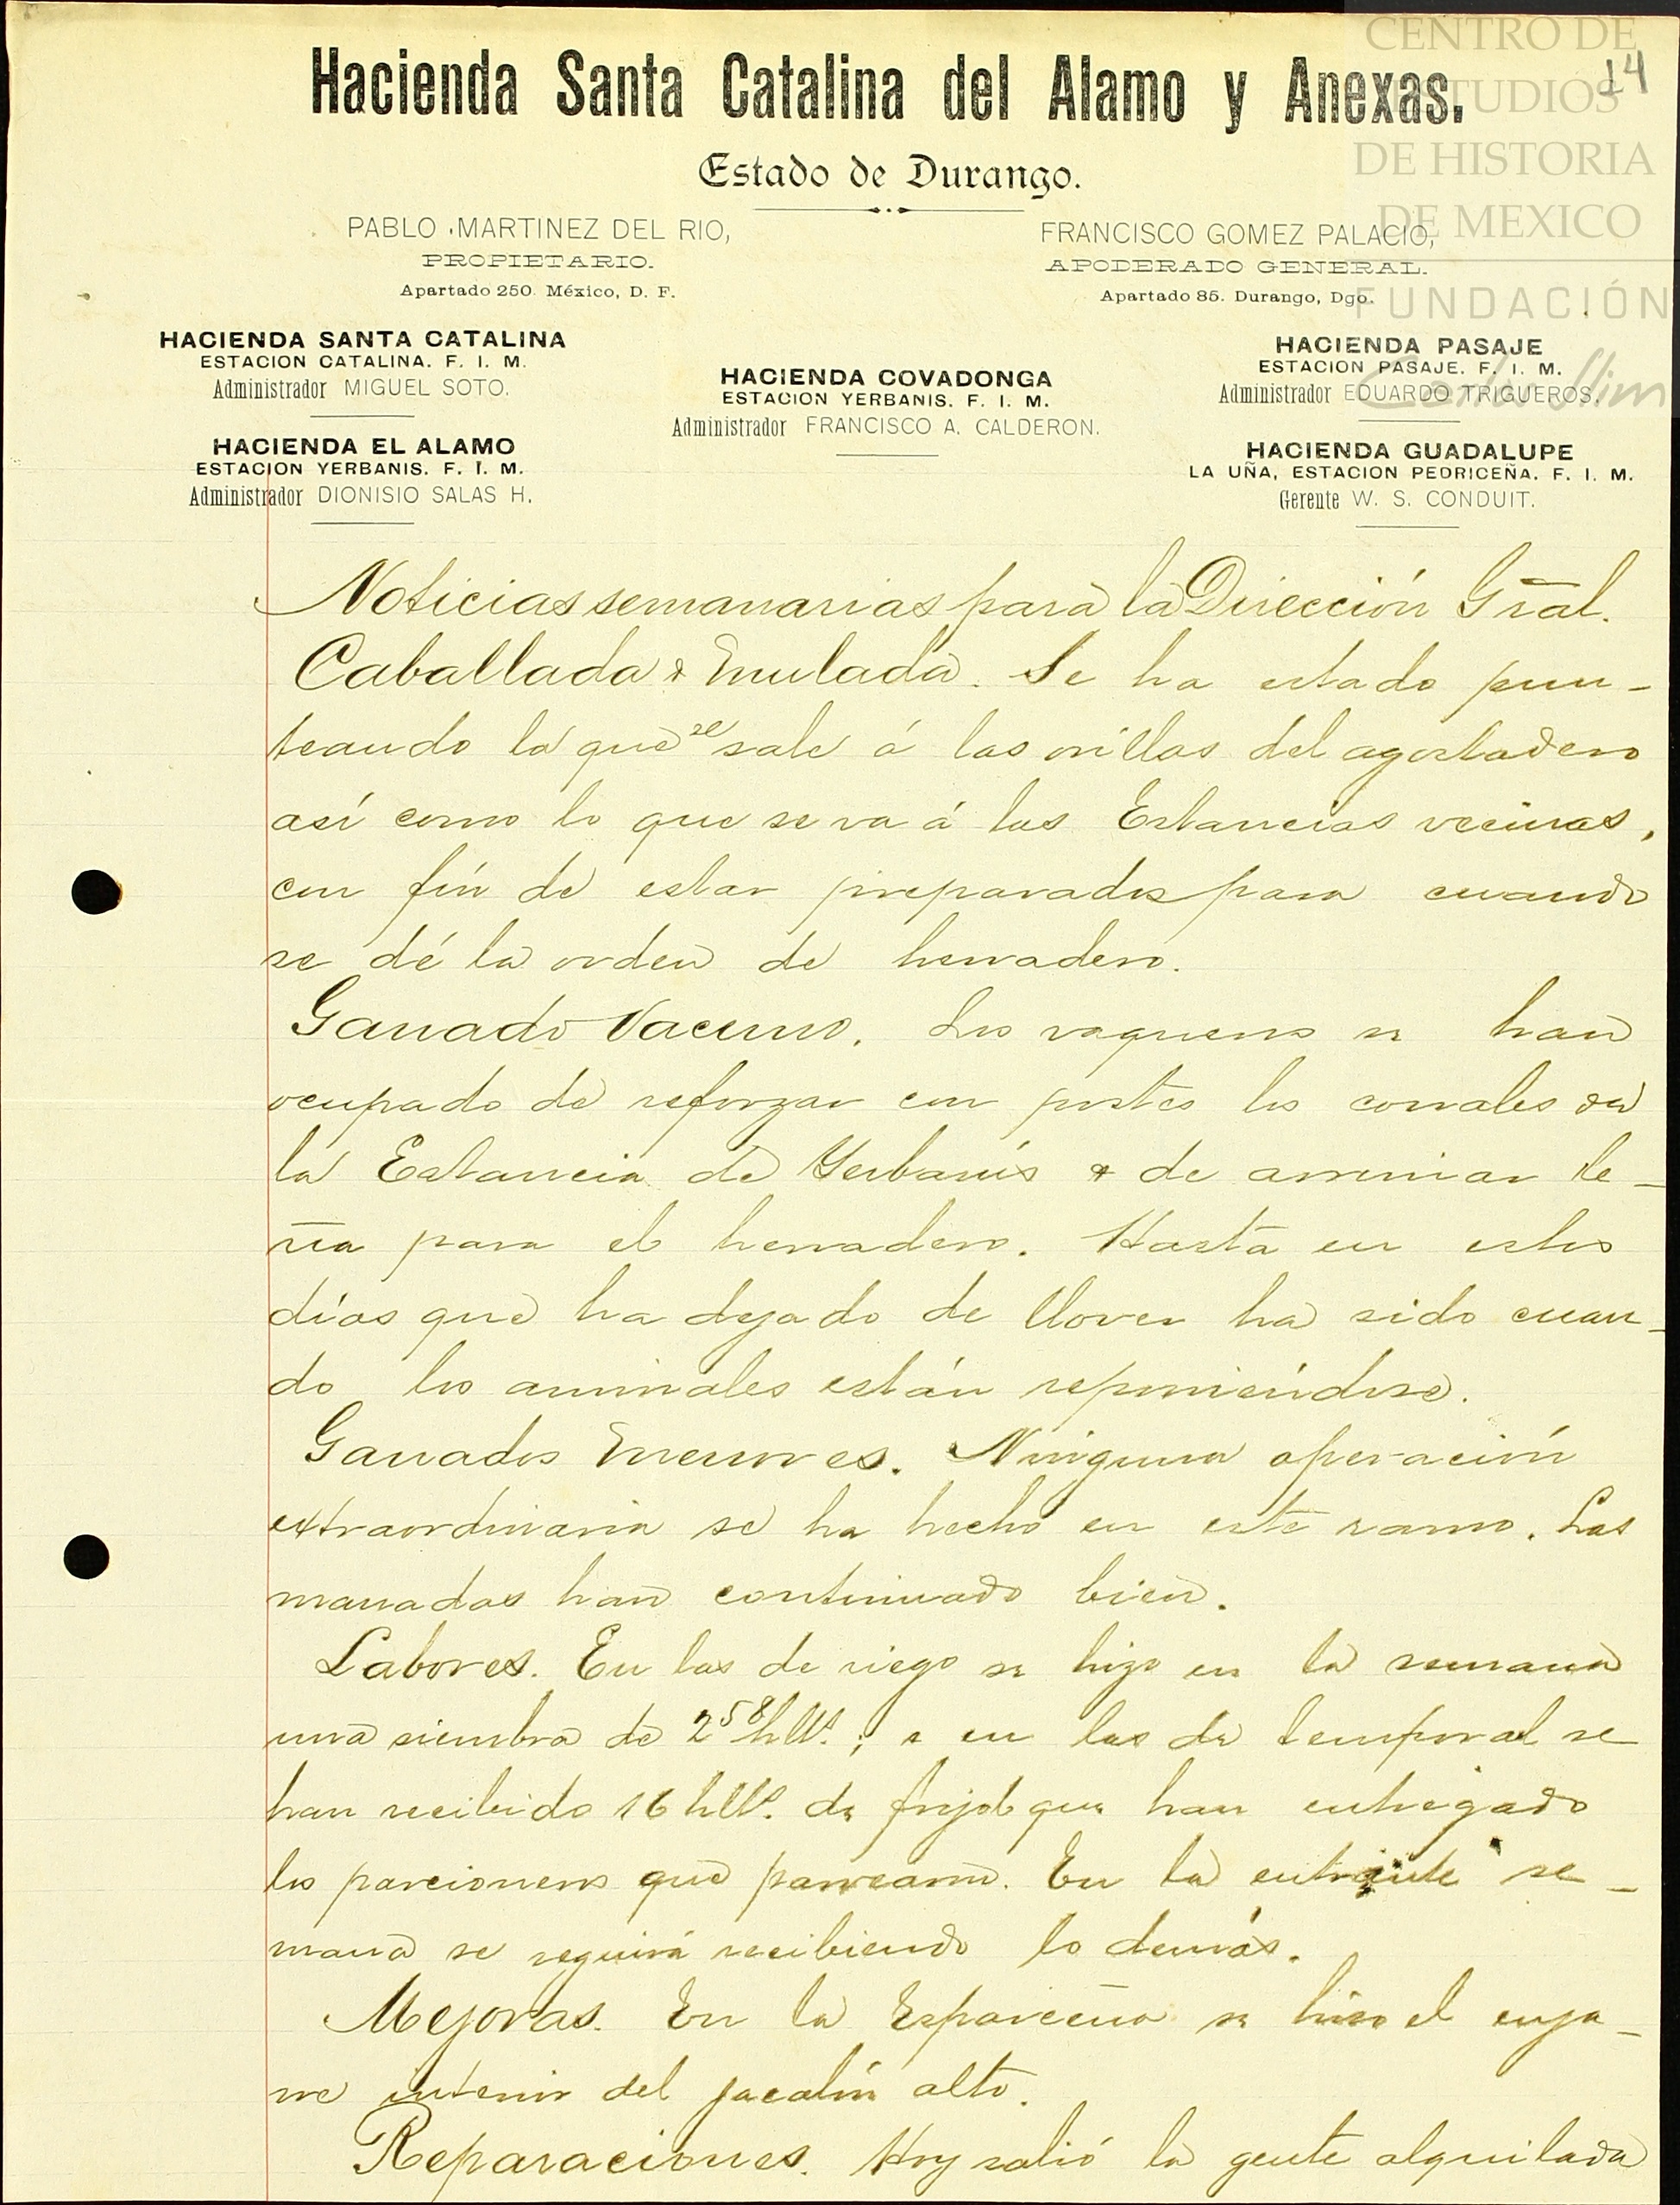 CENTRO DE
ESTUDIOS
DE HISTORIA
DE MEXICO
FUNDACIÓN
Carlos Slim
14
Hacienda Santa Catalina del Alamo y Anexas.
Estado de Durango.
PABLO MARTINEZ DEL RIO,
PROPIETARIO.
Apartado 250. México, D. F.
FRANCISCO GOMEZ PALACIO,
APODERADO GENERAL.
Apartado 85. Durango, Dgo.
HACIENDA SANTA CATALINA
ESTACION CATALINA. F. I. M.
Administrador MIGUEL SOTO.
HACIENDA EL ALAMO
ESTACION YERBANIS. F. I. M.
Administrador DIONISIO SALAS H.
HACIENDA COVADONGA
ESTACION YERBANIS. F. I. M.
Administrador FRANCISCO A. CALDERON.
HACIENDA PASAJE
ESTACION PASAJE. F. I. M.
Administrador EDUARDO TRIGUEROS.
HACIENDA GUADALUPE
LA UÑA, ESTACION PEDRICEÑA. F. I. M.
Gerente W. S. CONDUIT.
Noticias semanarias para la Dirección Gral.
Caballada & mulada. Se ha estado pun-
teando la que se sale á las orillas del agostadero
así como lo que se va á las Estancias vecinas,
con fín de estar preparados para cuando
se dé la orden de herradero.
Ganado Vacuno. Los vaqueros se han
ocupado de reforzar con postes los corrales de
la Estancia de Yerbanís & de arrimar le-
ña para el herradero. Hasta en estos
días que ha dejado de llover ha sido cuan-
do los animales están reponiéndose.
Ganados menores. Ninguna operación
extraordinaria se ha hecho en este ramo. Las
manadas han continuado bien.
Labores. En las de riego se hizo en la semana
una siembra de 2 58 hlls.; & en las de temporal se
han recibido 16 hlls. de frijol que han entregado
los parcioneros que
En la entrante se-
mana se seguirá recibiendo lo demás.
Mejoras. En la Esparceña se hizo el enja-
rre interior del jacalón alto.
Reparaciones. Hoy salió la gente alquilada